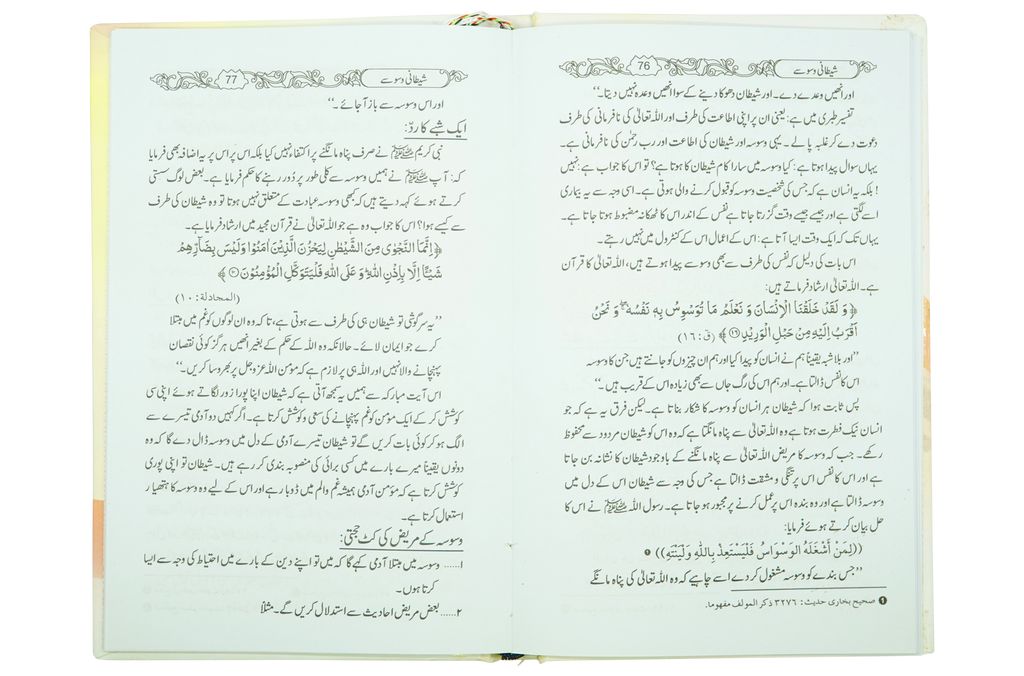 شیطانی وسوسے
76
اور انھیں وعدے دے۔ اور شیطان دھوکا دینے کے سوا انھیں وعدہ نہیں دیتا۔‘‘
تفسیر طبری میں ہے: یعنی ان پر اپنی اطاعت کی طرف اور اللہ تعالیٰ کی نافرمانی کی طرف
دعوت دے کر غلبہ پالے۔ یہی وسوسہ اور شیطان کی اطاعت اور رب رحمٰن کی نافرمانی ہے۔
یہاں سوال پیدا ہوتا ہے: کیا وسوسہ میں سارا کام شیطان کا ہوتا ہے؟ تو اس کا جواب ہے: نہیں
! بلکہ یہ انسان ہے کہ جس کی شخصیت وسوسہ کو قبول کرنے والی ہوتی ہے۔ اسی وجہ سے یہ بیماری
اسے لگتی ہے اور جیسے جیسے وقت گزرتا جاتا ہے نفس کے اندر اس کا ٹھکانہ مضبوط ہوتا جاتا ہے۔
یہاں تک کہ ایک وقت ایسا آتا ہے: اس کے اعمال اس کے کنٹرول میں نہیں رہتے۔
اس بات کی دلیل کہ نفس کی طرف سے بھی وسوسے پیدا ہوتے ہیں، اللہ تعالیٰ کا قرآن
ہے۔ اللہ تعالیٰ ارشاد فرماتے ہیں:
﴿ وَ لَقَدْ خَلَقْنَا الْاِنْسَانَ وَ نَعْلَمُ مَا تُوَسْوِسُ بِهٖ نَفْسُهٗ ۚۖ وَ نَحْنُ
اَقْرَبُ اِلَیْهِ مِنْ حَبْلِ الْوَرِیْدِ۝۱۶ ﴾ (قٓ:۱۶)
’’اور بلاشبہ یقیناً ہم نے انسان کو پیدا کیا اور ہم ان چیزوں کو جانتے ہیں جن کا وسوسہ
اس کا نفس ڈالتا ہے۔ اور ہم اس کی رگ جاں سے بھی زیادہ اس کے قریب ہیں۔‘‘
پس ثابت ہوا کہ شیطان ہر انسان کو وسوسہ کا شکار بناتا ہے۔ لیکن فرق یہ ہے کہ جو
انسان نیک فطرت ہوتا ہے وہ اللہ تعالیٰ سے پناہ مانگتا ہے کہ وہ اس کو شیطان مردود سے محفوظ
رکھے۔ جب کہ وسوسہ کا مریض اللہ تعالیٰ سے پناہ مانگنے کے باوجود شیطان کا نشانہ بن جاتا
ہے اور اس کا نفس اس پر تنگی و مشقت ڈالتا ہے جس کی وجہ سے شیطان اس کے دل میں
وسوسہ ڈالتا ہے اور وہ بندہ اس پر عمل کرنے پر مجبور ہو جاتا ہے۔ رسول اللہ ﷺ نے اس کا
حل بیان کرتے ہوئے فرمایا:
((لِمَنْ أَشْغَلَهُ الْوَسْوَاسُ فَلْيَسْتَعِذْ بِاللّٰهِ وَلْيَنْتَهِ)) ❶
’’جس بندے کو وسوسہ مشغول کر دے اسے چاہیے کہ وہ اللہ تعالیٰ کی پناہ مانگے
❶ صحیح بخاری حدیث: ۳۲۷۶ ذکر المولف مفهوما.
شیطانی وسوسے
77
اور اس وسوسہ سے باز آ جائے۔‘‘
ایک شبے کا ردّ:
نبی کریم ﷺ نے صرف پناہ مانگنے پر اکتفاء نہیں کیا بلکہ اس پر اس پر یہ اضافہ بھی فرمایا
کہ: آپ ﷺ نے ہمیں وسوسہ سے کلی طور پر دُور رہنے کا حکم فرمایا ہے۔ بعض لوگ سستی
کرتے ہوئے کہہ دیتے ہیں کہ بھی وسوسہ عبادت کے متعلق نہیں ہوتا تو وہ شیطان کی طرف
سے کیسے ہوا؟ اس کا جواب وہ ہے جو اللہ تعالیٰ نے قرآن مجید میں ارشاد فرمایا ہے۔
﴿ اِنَّمَا النَّجْوٰی مِنَ الشَّیْطٰنِ لِیَحْزُنَ الَّذِیْنَ اٰمَنُوْا وَلَیْسَ بِضَآرِّهِمْ
شَیْـًٔا اِلَّا بِاِذْنِ اللّٰهِ ؕ وَ عَلَی اللّٰهِ فَلْیَتَوَكَّلِ الْمُؤْمِنُوْنَ۝۱۰ ﴾
(المجادلة:۱۰)
’’یہ سرگوشی تو شیطان ہی کی طرف سے ہوتی ہے، تاکہ وہ ان لوگوں کو غم میں مبتلا
کرے جو ایمان لائے۔ حالانکہ وہ اللہ کے حکم کے بغیر انھیں ہرگز کوئی نقصان
پہنچانے والا نہیں اور اللہ ہی پر لازم ہے کہ مؤمن اللہ عزوجل پر بھروسا کریں۔‘‘
اس آیت مبارکہ سے ہمیں یہ سمجھ آتی ہے کہ شیطان اپنا پورا زور لگاتے ہوئے اپنی سی
کوشش کر کے ایک مؤمن کو غم پہنچانے کی سعی و کوشش کرتا ہے۔ اگر کہیں دو آدمی تیسرے سے
الگ ہو کر کوئی بات کریں گے تو شیطان تیسرے آدمی کے دل میں وسوسہ ڈال دے گا کہ وہ
دونوں یقیناً میرے بارے میں کسی برائی کی منصوبہ بندی کر رہے ہیں۔ شیطان تو اپنی پوری
کوشش کرتا ہے کہ مؤمن آدمی ہمیشہ غم و الم میں ڈوبا رہے اور اس کے لیے وہ وسوسہ کا ہتھیار
استعمال کرتا ہے۔
وسوسہ کے مریض کی کٹ حجتی:
۱...... وسوسہ میں مبتلا آدمی کہے گا کہ میں تو اپنے دین کے بارے میں احتیاط کی وجہ سے ایسا
کرتا ہوں۔
۲...... بعض مریض احادیث سے استدلال کریں گے۔ مثلاً